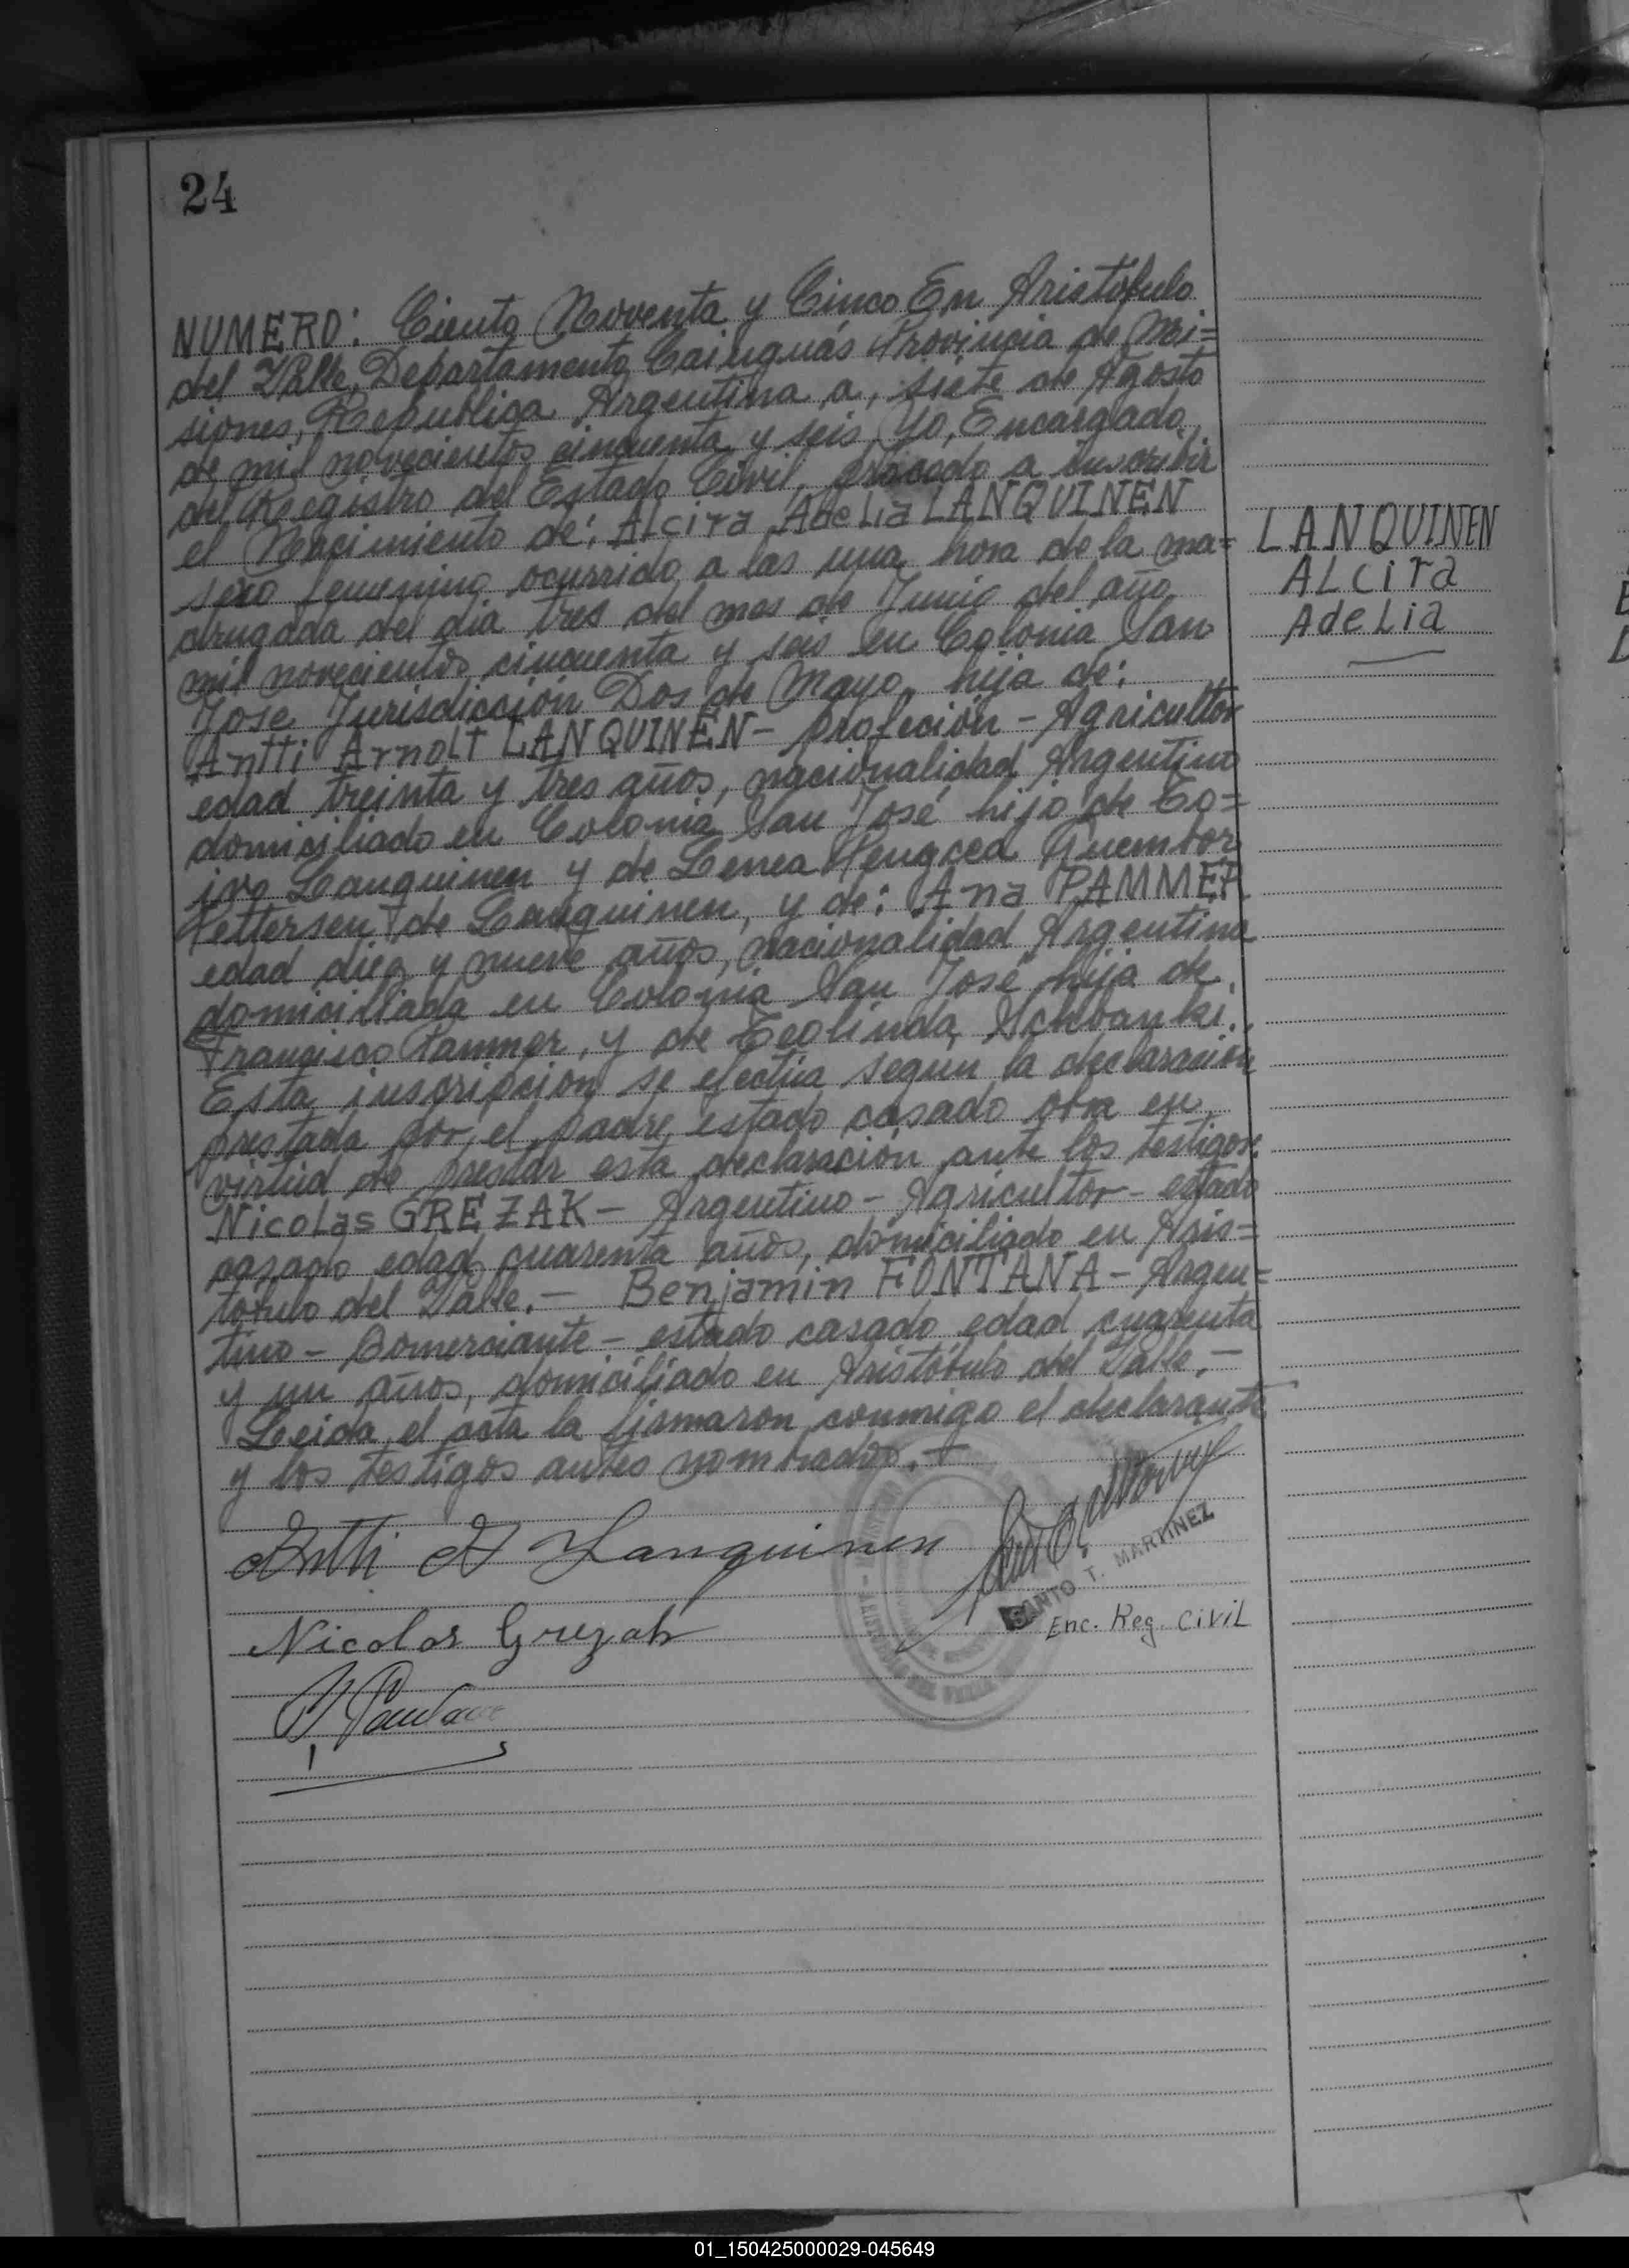 24
NUMERO: Ciento Noventa y Cinco En Aristóbulo
del Valle, Departamento Cainguás Provincia de Mi=
siones, Republica Argentina a, siete de Agosto
de mil novecientos cincuenta y seis, Yo, Encargado
del Reegistro del Estado Civil, procedo a inscribir
el Nacimiento de: Alcira Adelia LANQUINEN
sexo femenino ocurrido a las una hora de la ma=
drugada del dia tres del mes de Junio del año
mil novecientos cincuenta y seis en Colonia San
Jose Jurisdicción Dos de Mayo, hija de:
Antti Arnolt LANQUINEN - profeción - Agricultor
edad treinta y tres años, nacionalidad Argentino
domiciliado en Colonia San José hijo de
Lanquinen y de Lenea
Pettersen de Lanquinen, y de: Ana PAMMER
edad diez y nueve años, nacionalidad Argentina
domiciliada en Colonia San José hija de
Francisco Pammer, y de Teolinda
Esta inscripcion se efectúa segun la declaración
prestada por el padre, estado casado obra en
virtud de prestar esta declaración ante los testigos:
Nicolas GREZAK - Argentino - Agricultor - estado
casado edad cuarenta años, domiciliado en Aris=
tobulo del Valle. - Benjamin FONTANA - Argen=
tino - Comerciante - estado casado edad cuarenta
y un años, domiciliado en Aristóbulo del Valle. -
Leida el acta la firmaron conmigo el declarante
y los testigos antes nombrados. -
LANQUINEN
ALcira
AdeLia
Antti A Lanquinen
SANTO T. MARTINEZ
Enc. Reg. Civil
Nicolas Grezak
01_150425000029-045649